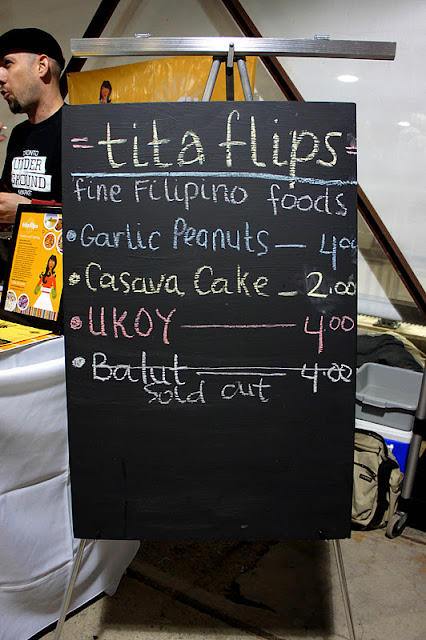 = tita flips =
fine Filipino foods
• Garlic Peanuts — 4.00
• Casava Cake — 2.00
• UKOY — 4.00
• Balut — 4.00
Sold out
UNDER
GROUND